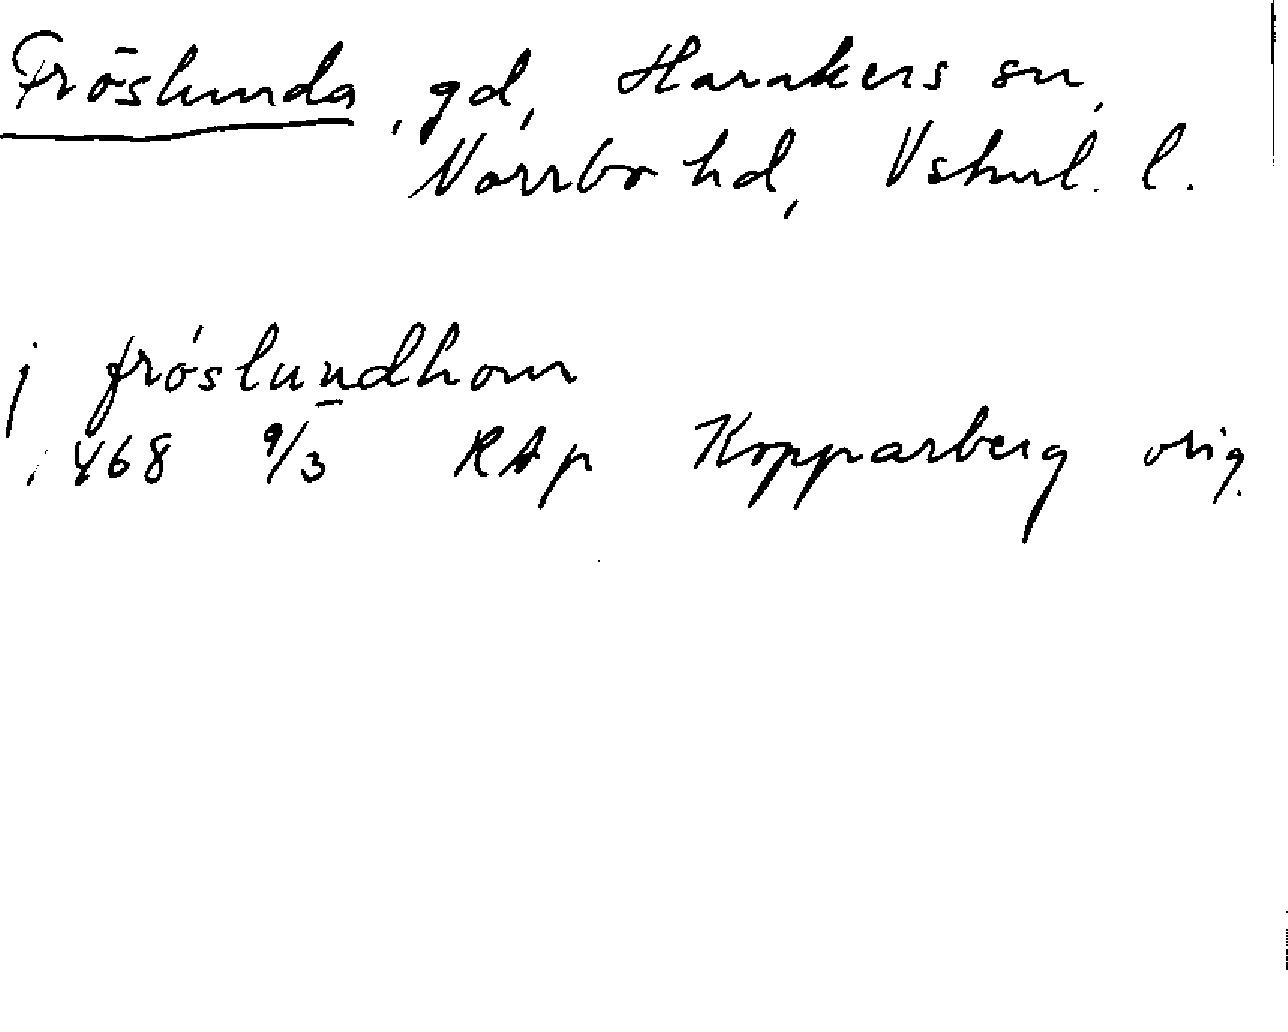 Fröslunda, gd, Harakers sn,
Norrbo hd, Vstml. l.
j fróslundhom
1468 9/3 RAp Kopparberg orig.